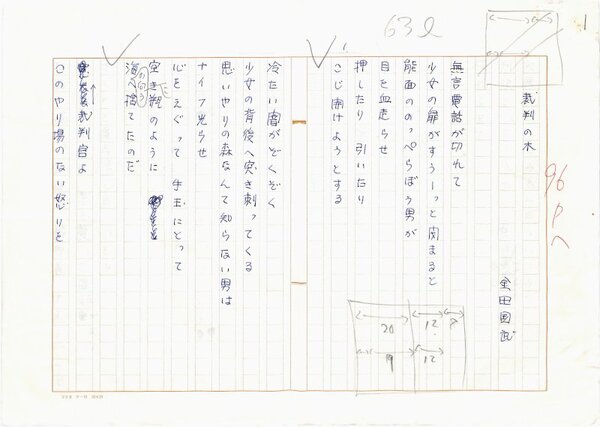 63ℓ
1
裁判の木
96pへ
金田国武
無言電話が切れて
少女の扉がすうーっと閉まると
能面ののっぺらぼう男が
目を血走らせ
押したり 引いたり
こじ開けようとする
冷たい闇がぞくぞく
少女の背後へ突き刺ってくる
思いやりの森なんて知らない男は
ナイフ光らせ
心をえぐって 手玉にとって
空き瓶のように
海の向うへ捨てたのだ
裁判官よ
このやり場のない怒りを
20
12
8
19
12